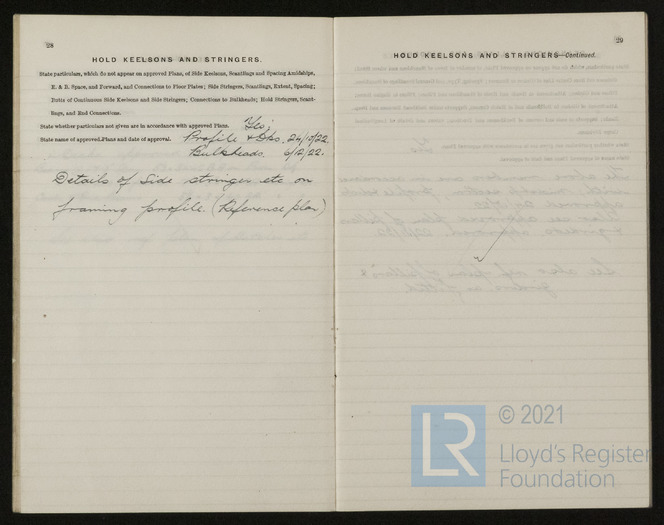 28
HOLD KEELSONS AND STRINGERS.
State particulars, which do not appear on approved Plans, of Side Keelsons, Scantlings and Spacing Amidships,
E. & B. Space, and Forward, and Connections to Floor Plates; Side Stringers, Scantlings, Extent, Spacing;
Butts of Continuous Side Keelsons and Side Stringers; Connections to Bulkheads; Hold Stringers, Scant-
lings, and End Connections.
State whether particulars not given are in accordance with approved Plans. Yes;
State name of approved Plans and date of approval. Profile & Dks, 24/10/22.
Bulkheads, 6/12/22.
Details of Side stringer etc on
framing profile. (Reference plan)
29
HOLD KEELSONS AND STRINGERS—Continued.
LR
© 2021
Lloyd's Register
Foundation